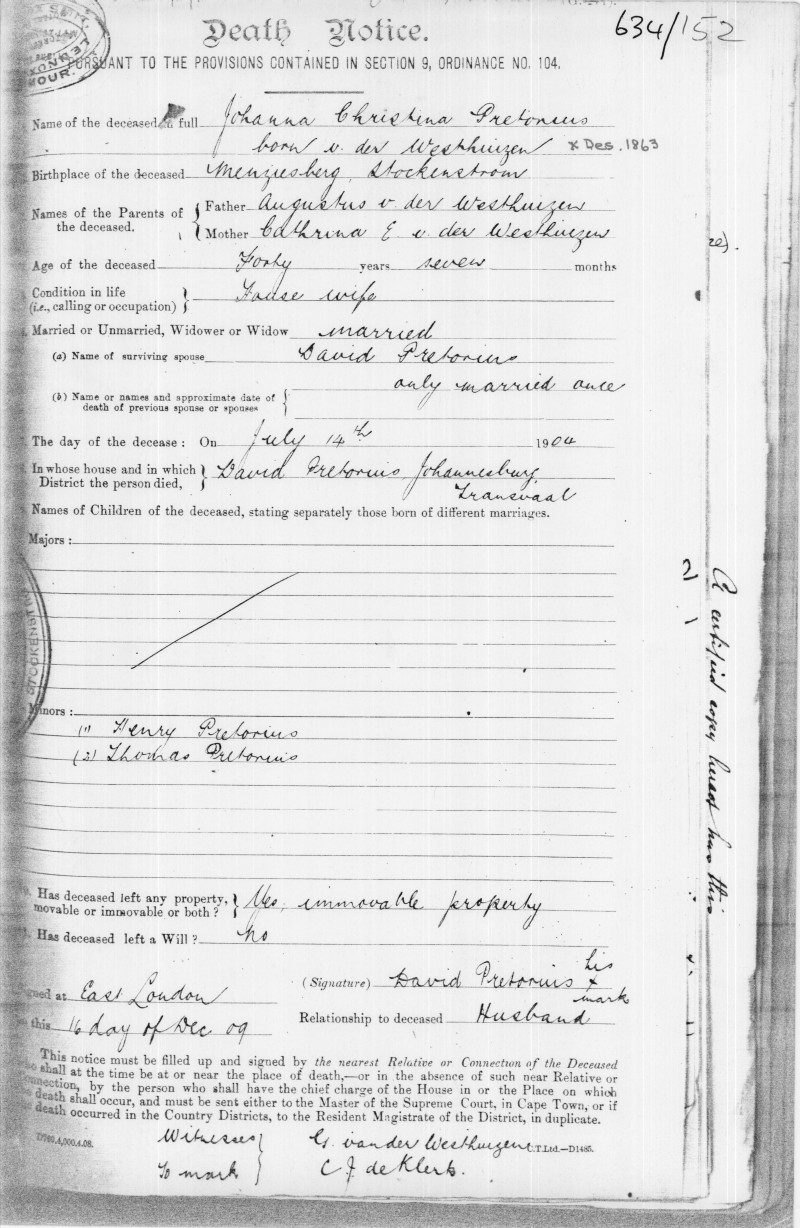 Death Notice.
634/152
PURSUANT TO THE PROVISIONS CONTAINED IN SECTION 9, ORDINANCE NO. 104.
Name of the deceased in full Johanna Christina Pretorius
born v. der Westhuizen x Des. 1863
Birthplace of the deceased Menziesberg, Stockenstrom
Names of the Parents of the deceased. { Father Augustus v. der Westhuizen
Mother Cathrina E v. der Westhuizen
Age of the deceased Forty years seven months
Condition in life (i.e., calling or occupation) } House wife
Married or Unmarried, Widower or Widow married
(a) Name of surviving spouse David Pretorius
only married once
(b) Name or names and approximate date of death of previous spouse or spouses {
The day of the decease: On July 14th 1904
In whose house and in which District the person died, } David Pretorius, Johannesburg,
Transvaal
Names of Children of the deceased, stating separately those born of different marriages.
Majors:
STOCKENSTR
Minors:
(1) Henry Pretorius
(2) Thomas Pretorius
Has deceased left any property, movable or immovable or both? } Yes, immovable property
Has deceased left a Will? No
(Signature) David Pretorius his x mark
Signed at East London
Relationship to deceased Husband
this 16 day of Dec 09
This notice must be filled up and signed by the nearest Relative or Connection of the Deceased
who shall at the time be at or near the place of death,—or in the absence of such near Relative or
Connection, by the person who shall have the chief charge of the House in or the Place on which
the death shall occur, and must be sent either to the Master of the Supreme Court, in Cape Town, or if
the death occurred in the Country Districts, to the Resident Magistrate of the District, in duplicate.
C.T.Ltd.—D1485.
Witnesses } G. van der Westhuizen
to mark } C J. de Klerk.
2)
A certified copy has this